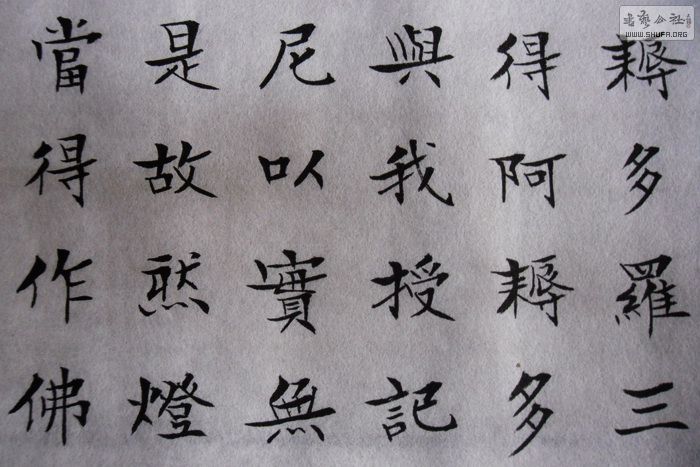 耨多羅三
得阿耨多
與我授記
尼以實無
是故然燈
當得作佛
书艺公社
WWW.SHUFA.ORG